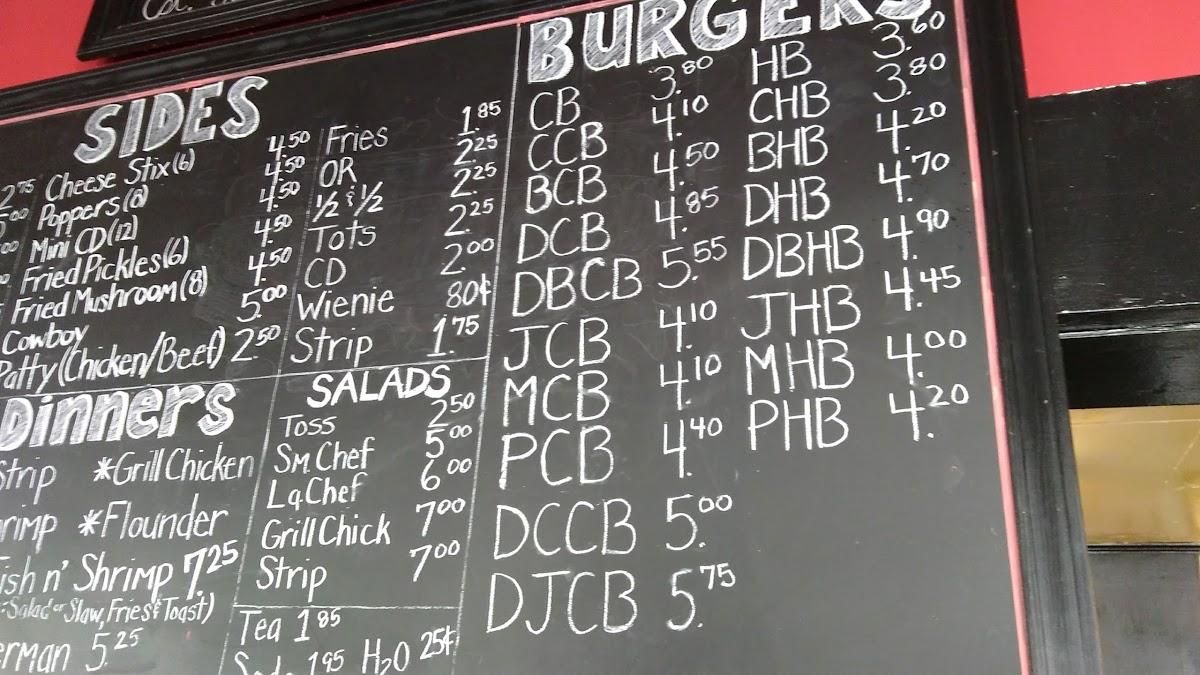 SIDES
Cheese Stix (6) 4.50
Poppers (8) 4.50
Mini CD (12) 4.50
Fried Pickles (6) 4.50
Fried Mushroom (8) 4.50
Cowboy 5.00
Patty (Chicken/Beef) 2.50
Fries 1.85
OR 2.25
½ & ½ 2.25
Tots 2.25
CD 2.00
Wienie 80¢
Strip 1.75
Dinners
Strip *Grill Chicken
*Flounder
n' Shrimp 7.25
Salad or Slaw, Fries & Toast)
5.25
SALADS
Toss 2.50
Sm Chef 5.00
Lg Chef 6.00
Grill Chick 7.00
Strip 7.00
Tea 1.85
1.95 H2O 25¢
BURGERS
CB 3.80
CCB 4.10
BCB 4.50
DCB 4.85
DBCB 5.55
JCB 4.10
MCB 4.10
PCB 4.40
DCCB 5.00
DJCB 5.75
HB 3.60
CHB 3.80
BHB 4.20
DHB 4.70
DBHB 4.90
JHB 4.45
MHB 4.00
PHB 4.20